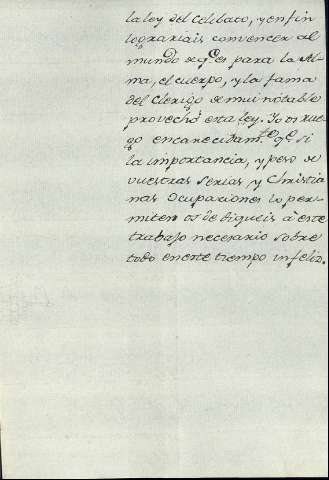 la ley del Celibaco, y en fin
lograriais convencer al
mundo q.e es para la Al-
ma, el cuerpo, y la fama
del Clerigo de mui notable
provecho esta Ley. Yo os rue-
go encarecidam.te q.e si
la importancia, y peso de
vuestras serias y Christia
nas Ocupaciones lo per-
miten os dediqueis á este
trabajo necesario sobre
todo en este tiempo infeliz.